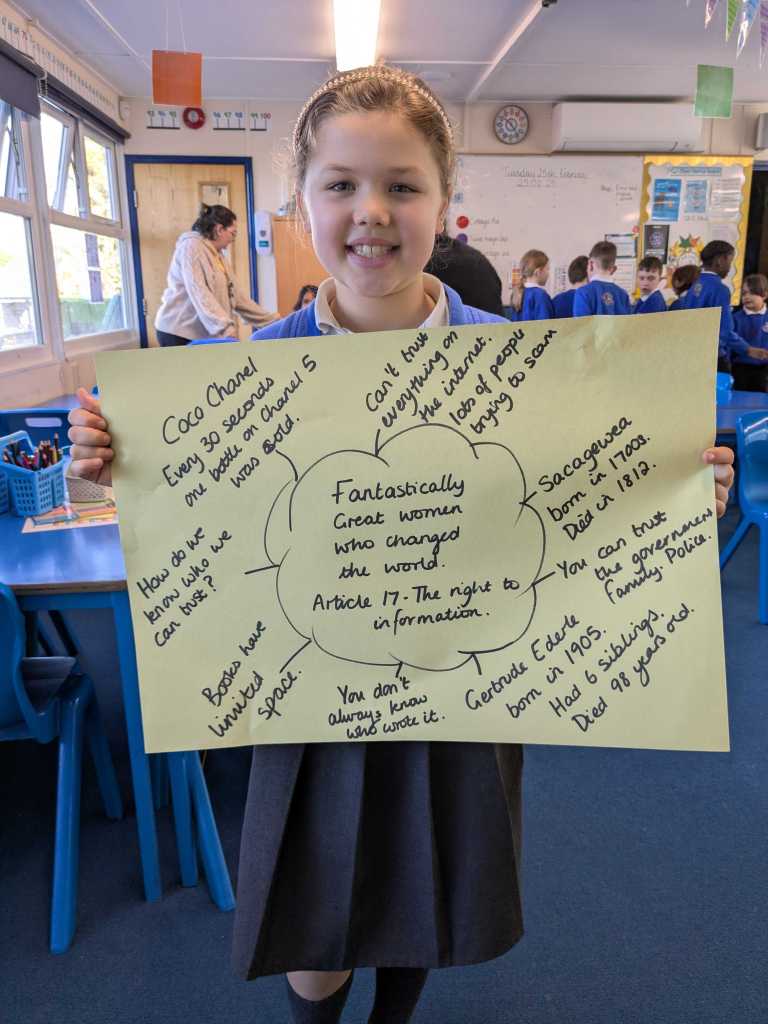 Tuesday 25th February
25.02.25
Coco Chanel
Every 30 seconds
one bottle on Chanel 5
was sold.
Can't trust
everything on
the internet.
lots of people
trying to scam
Sacagewea
born in 1700s.
Died in 1812.
You can trust
the government
Family. Police.
Gertrude Ederle
born in 1905.
Had 6 siblings.
Died 98 years old.
You don't
always know
who wrote it.
Books have
limited
space.
How do we
know who we
can trust?
Fantastically
Great women
who changed
the world.
Article 17 - The right to
information.